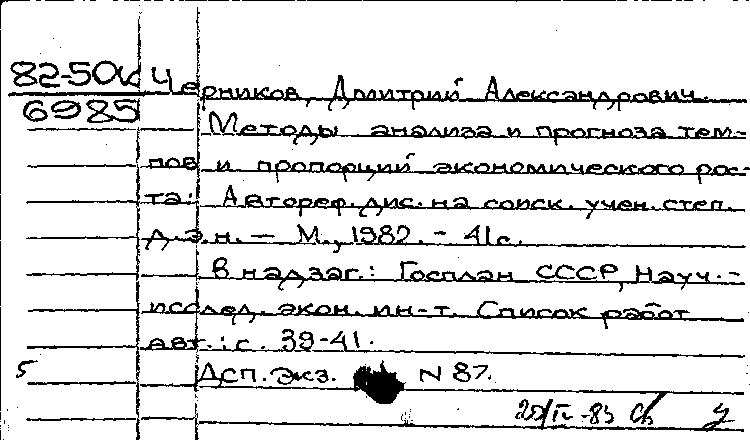 82-50к Черников, Дмитрий Александрович.
6985
Методы анализа и прогноза тем-
пов и пропорций экономического рос-
та: Автореф. дис. на соиск. учен. степ.
д.э.н. – М., 1982. – 41 с.
В надзаг.: Госплан СССР, Науч.-
исслед. экон. ин-т. Список работ
авт.: с. 39-41.
5 Дсп. экз. N 87.